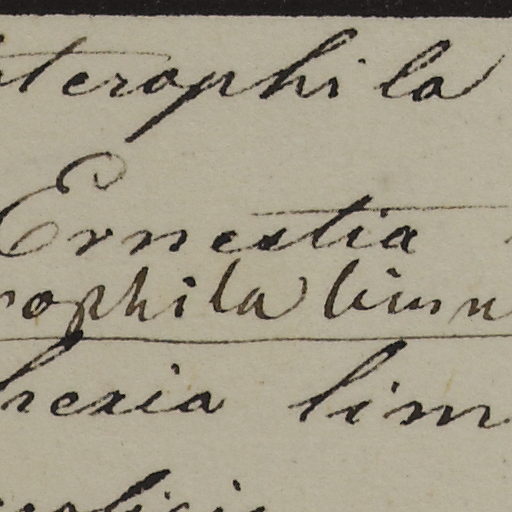 terophila
Ernestia
ophila limn
hexia lim